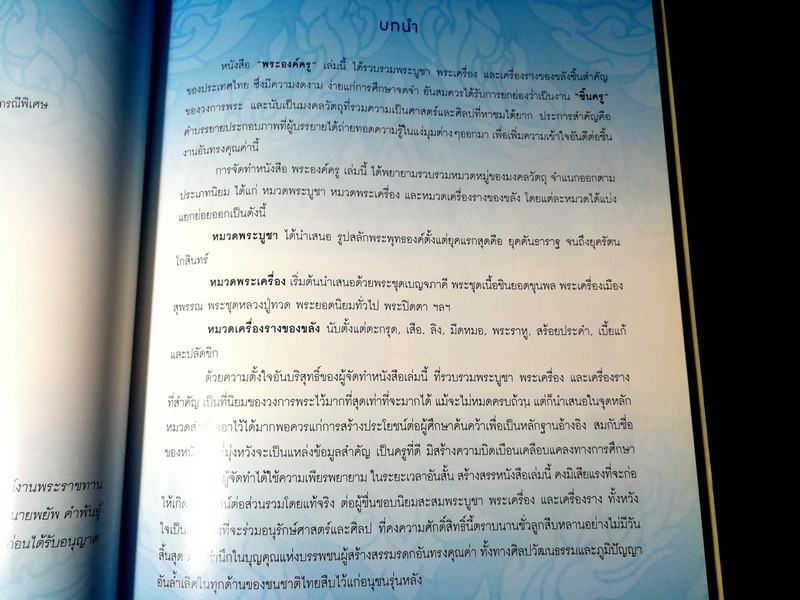 บทนำ
หนังสือ "พระองค์ครู" เล่มนี้ ได้รวบรวมพระบูชา พระเครื่อง และเครื่องรางของขลังชิ้นสำคัญ
ของประเทศไทย ซึ่งมีความงดงาม ง่ายแก่การศึกษาจดจำ อันสมควรได้รับการยกย่องว่าเป็นงาน "ชิ้นครู"
ของวงการพระ และนับเป็นมงคลวัตถุที่รวมความเป็นศาสตร์และศิลป์ที่หาชมได้ยาก ประการสำคัญคือ
คำบรรยายประกอบภาพที่ผู้บรรยายได้ถ่ายทอดความรู้ในแง่มุมต่างๆออกมา เพื่อเพิ่มความเข้าใจอันดีต่อชิ้น
งานอันทรงคุณค่านี้
การจัดทำหนังสือ พระองค์ครู เล่มนี้ ได้พยายามรวบรวมหมวดหมู่ของมงคลวัตถุ จำแนกออกตาม
ประเภทนิยม ได้แก่ หมวดพระบูชา หมวดพระเครื่อง และหมวดเครื่องรางของขลัง โดยแต่ละหมวดได้แบ่ง
แยกย่อยออกเป็นดังนี้
หมวดพระบูชา ได้นำเสนอ รูปสลักพระพุทธองค์ตั้งแต่ยุคแรกสุดคือ ยุคคันธาราฐ จนถึงยุครัตน
โกสินทร์
หมวดพระเครื่อง เริ่มต้นนำเสนอด้วยพระชุดเบญจภาคี พระชุดเนื้อชินยอดขุนพล พระเครื่องเมือง
สุพรรณ พระชุดหลวงปู่ทวด พระยอดนิยมทั่วไป พระปิดตา ฯลฯ
หมวดเครื่องรางของขลัง นับตั้งแต่ตะกรุด, เสือ, ลิง, มีดหมอ, พระราหู, สร้อยประคำ, เบี้ยแก้
และปลัดขิก
ด้วยความตั้งใจอันบริสุทธิ์ของผู้จัดทำหนังสือเล่มนี้ ที่รวบรวมพระบูชา พระเครื่อง และเครื่องราง
ที่สำคัญ เป็นที่นิยมของวงการพระไว้มากที่สุดเท่าที่จะมากได้ แม้จะไม่หมดครบถ้วน แต่ก็นำเสนอในจุดหลัก
หมวดสำ เอาไว้ได้มากพอควรแก่การสร้างประโยชน์ต่อผู้ศึกษาค้นคว้าเพื่อเป็นหลักฐานอ้างอิง สมกับชื่อ
ของหน ที่มุ่งหวังจะเป็นแหล่งข้อมูลสำคัญ เป็นครูที่ดี มิสร้างความบิดเบือนเคลือบแคลงทางการศึกษา
ผู้จัดทำได้ใช้ความเพียรพยายาม ในระยะเวลาอันสั้น สร้างสรรหนังสือเล่มนี้ คงมิเสียแรงที่จะก่อ
ให้เกิด น์ต่อส่วนรวมโดยแท้จริง ต่อผู้ชื่นชอบนิยมสะสมพระบูชา พระเครื่อง และเครื่องราง ทั้งหวัง
ใจเป็น งที่จะร่วมอนุรักษ์ศาสตร์และศิลป ที่คงความศักดิ์สิทธิ์นี้ตราบนานชั่วลูกสืบหลานอย่างไม่มีวัน
สิ้นสุด นึกในบุญคุณแห่งบรรพชนผู้สร้างสรรมรดกอันทรงคุณค่า ทั้งทางศิลปวัฒนธรรมและภูมิปัญญา
อันล้ำเลิศในทุกด้านของชนชาติไทยสืบไว้แก่อนุชนรุ่นหลัง
กรณีพิเศษ
งานพระราชทาน
นายพยัพ คำพันธุ์
ก่อนได้รับอนุญาต